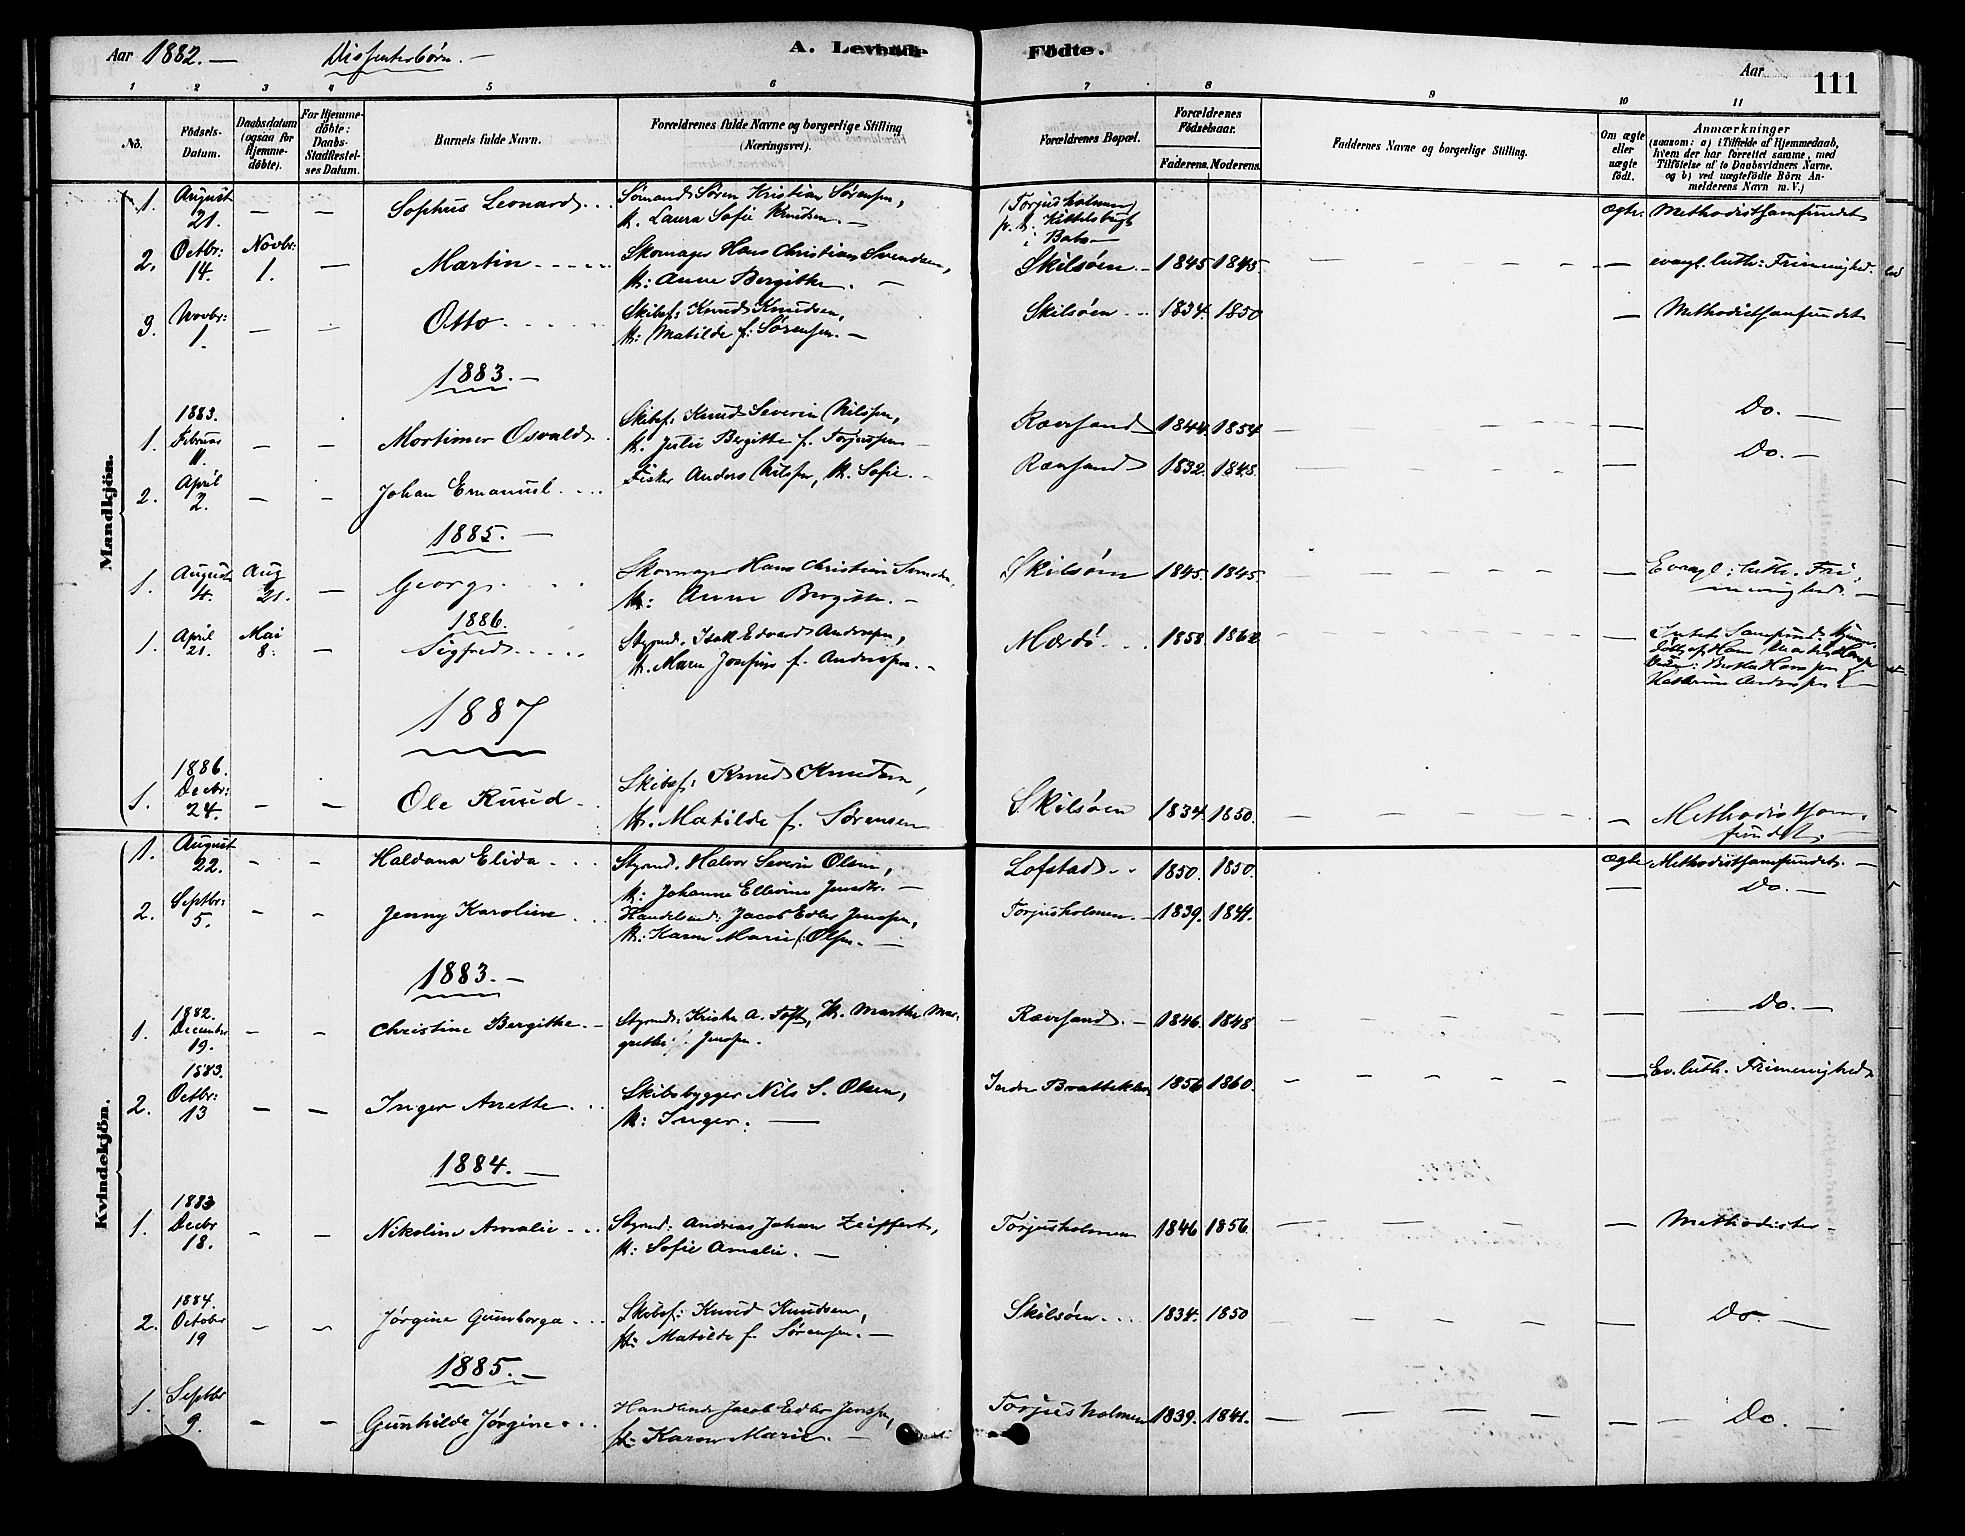 Aar 1882. — Dissenterbørn. — A. Levende Födte. Aar 111
1 2 3 4 5 6 7 8 9 10 11
No.
Födsels-Datum.
Daabsdatum (ogsaa for Hjemme-döbte).
For Hjemme-döbte: Daabs-Stadfæstel-ses Datum.
Barnets fulde Navn.
Forældrenes fulde Navne og borgerlige Stilling (Næringsvei).
Forældrenes Bopæl.
Forældrenes Födselsaar.
Faderens. Moderens.
Faddernes Navne og borgerlige Stilling.
Om ægte eller uægte födt.
Anmærkninger
(saasom: a) i Tilfælde af Hjemmedaab,
hvem der har forrettet samme, med
Tilföielse af to Daabsvidners Navne,
og b) ved uægtefödte Börn An-
melderens Navn m. V.)
Mandkjön.
1. August 21. — — Sophus Leonard. Sømand Søren Kristian Sørensen, H. Laura Sofie Knudsen. — (Torjusholmen) p. t. Kittelsbugt i Ægte: Methodistsamfundet
2. Octbr: 14. Novbr: 1. — Martin Skomager Hans Christian Svendsen, H: Anne Bergitte. — Skilsøen. 1845 1845 — — evangl. luth: Frimenighed.
3. Novbr: 1. — — Otto. Skibsf: Knud Knudsen, H: Matilde f. Sørensen. — Skilsøen 1834. 1850 — Methodistsamfundet
1883. —
1. 1883. Februar 11. — — Mortimer Osvald. Skibsf: Knud Severin Nilssen, H. Julie Bergitte f. Torjussen Rævesand 1844. 1854 — — Do. —
2. April 2. — — Johan Emanuel. Fisker Anders Nilssen, H. Sofie. — Rævesand 1832. 1848. — — Do. —
1885. —
1. August 4. Aug 21. — Georg. Skomager Hans Christian Svendsen, H: Anne Bergitte. — Skilsøen 1845. 1845 — — Evangl: luth. Fri-menighed. —
1886.
1. April 21. Mai 8. — Sigfred. Styrmd. Isak Edvard Anderssen, H. Maren Josefine f. Anderssen. — Mærdø. 1858. 1862 — —
1887
1. 1886. Decbr: 24. — — Ole Knud. Skibsf: Knud Knudsen, H. Matilde f. Sørensen Skilsøen 1834 1850. — — Methodistsam-fundet.
Kvindekjön.
1. August 22. — — Haldana Elida. Styrmd. Halvor Severin Olsen, H: Johanne Ellevine Jensdtr. — Lofstad. 1850. 1850. Ægte Methodistsamfundet. —
2. Septbr: 5. — — Jenny Karoline Handelsmd: Jacob Edler Jenssen, H: Karen Marie f: Olsen. — Torjusholmen. 1839. 1841. — Do. —
1883. —
1. 1882. December 19. — — Christine Bergitte. Styrmd. Krister A. Toft, H. Marthe Mar-grethe Jenssen. Rævesand. 1846. 1848 — — Do. —
2. 1883. Octbr: 13 — — Inger Anette. Skibsbygger Nils S. Olsen, H: Inger. — Indre Brattekleiv 1856 1860. — — Ev. luth. Frimenighed
1884. —
1. 1883 Decbr 18. — — Nikoline Amalie Styrmd: Andreas Johan Zeiffert, H: Sofie Amalie. — Torjusholmen 1846 1856. — — Methodister —
2. 1884. October 19 — — Jørgine Gunvorga. Skibsf: Knud Knudsen, H: Matilde f. Sørensen. — Skilsøen. 1834. 1850 — — Do. —
1885. —
1. Septbr 9. — — Gunhilde Jørgine. Handlsmd Jacob Edler Jenssen, H: Karen Marie. — Torjusholmen 1839. 1841. — — Do. —